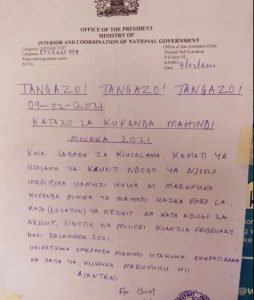 OFFICE OF THE PRESIDENT
MINISTRY OF
INTERIOR AND COORDINATION OF NATIONAL GOVERNMENT
Telephone
When replying please quote
Ref No
Office of the Assistant Chief
Location
P.O Box
NJORO
9/02/2021
TANGAZO! TANGAZO! TANGAZO!
09-02-2021
KATAZO LA KUPANDA MAHINDI
MWAKA 2021
KWA SABABU ZA KIUSALAMA, KAMATI YA
USALAMA YA KAUNTI NDOGO YA NJORO
IMEPITISHA UAMUZI KUWA NI MARUFUKU
KUPANDA MIMEA YA MAHINDI KATIKA ENEO LA
KATA (LOCATION) YA NESUIT NA KATA NDOGO ZA
NESUIT, SIGOTIK NA MIGERI KUANZIA FEBRUARY
HADI DECEMBER, 2021.
UKIPATIKANA UMEPANDA MAHINDI UTAKUWA UMEPATIKANA
NA HATIA YA KUKIUKA MARUFUKU HII
ASANTENI
For Chief